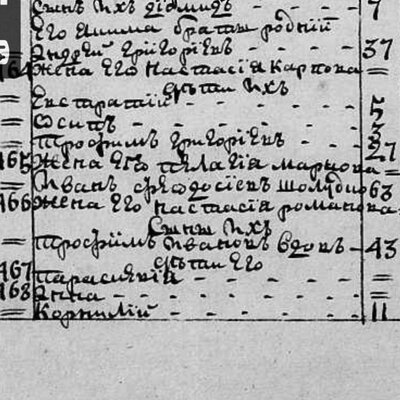 Сынъ Ихъ Дїомидъ - - 7
Его Якима братъ родный
Андрей Григорїевъ - - 37
164 Жена Его Настасїя Карпова =
Дѣти Ихъ
= Евстратїй - - - - 5
= Осипъ - - - - - 3
= Трофимъ Григорїевъ - - - 27
165 Жена Его Пелагїя Маркова =
= Иванъ Ѳеодосїевъ 63
166 Жена Его Настасїя Романова =
Сынъ Ихъ
= Трофїмъ Ивановъ вдовъ - 43
Дѣти Его
167 Параскевїя - - - - =
168 Анна - - - - - - =
= Корнилїй - - - - - 11